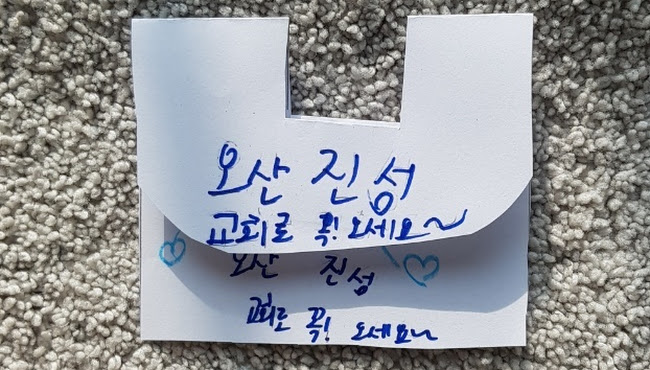 오산 진성
교회로 꼭! 오세요~
오산 진성
교회로 꼭! 오세요~